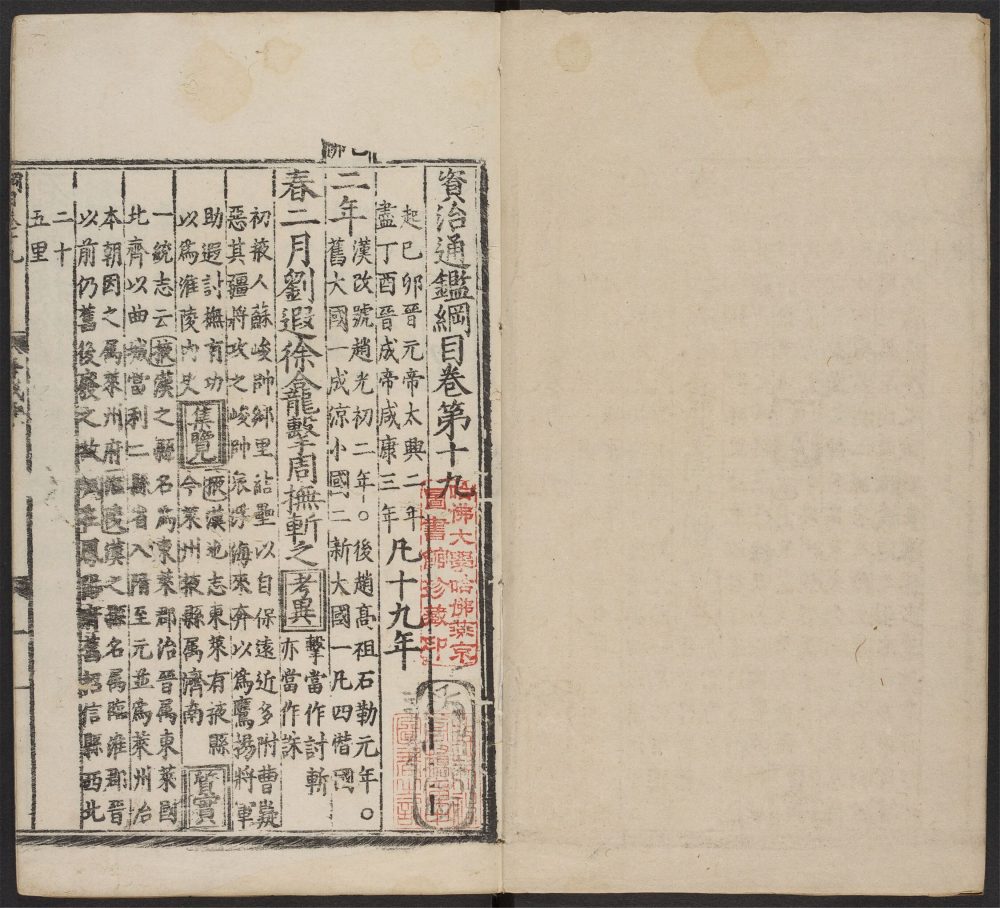 資治通鑑綱目卷第十九
起己卯晉元帝太興二年
盡丁酉晉成帝咸康三年
凡十九年
二年
漢改號趙光初二年○後趙高祖石勒元年○
舊大國一成涼小國二新大國一凡四僭國
春二月劉遐徐龕擊周撫斬之
考異
擊當作討斬
亦當作誅
初掖人蘇峻帥鄉里結壘以自保遠近多附曹嶷
惡其疆將攻之峻帥衆浮海來奔以爲鷹揚將軍
助遐討撫有功
以爲淮陵內史
集覽
掖漢地志東萊有掖縣
今萊州掖縣属濟南
質實
一統志云掖漢之縣名爲東萊郡治晉属東萊國
北齊以曲城當利二縣省入隋至元並爲萊州治
本朝因之属萊州府淮陵漢之縣名属臨淮郡晉
以前仍舊後廢之故城在鳳陽府舊招信縣西北
二十
五里
哈佛大學哈佛燕京
圖書館珍藏印